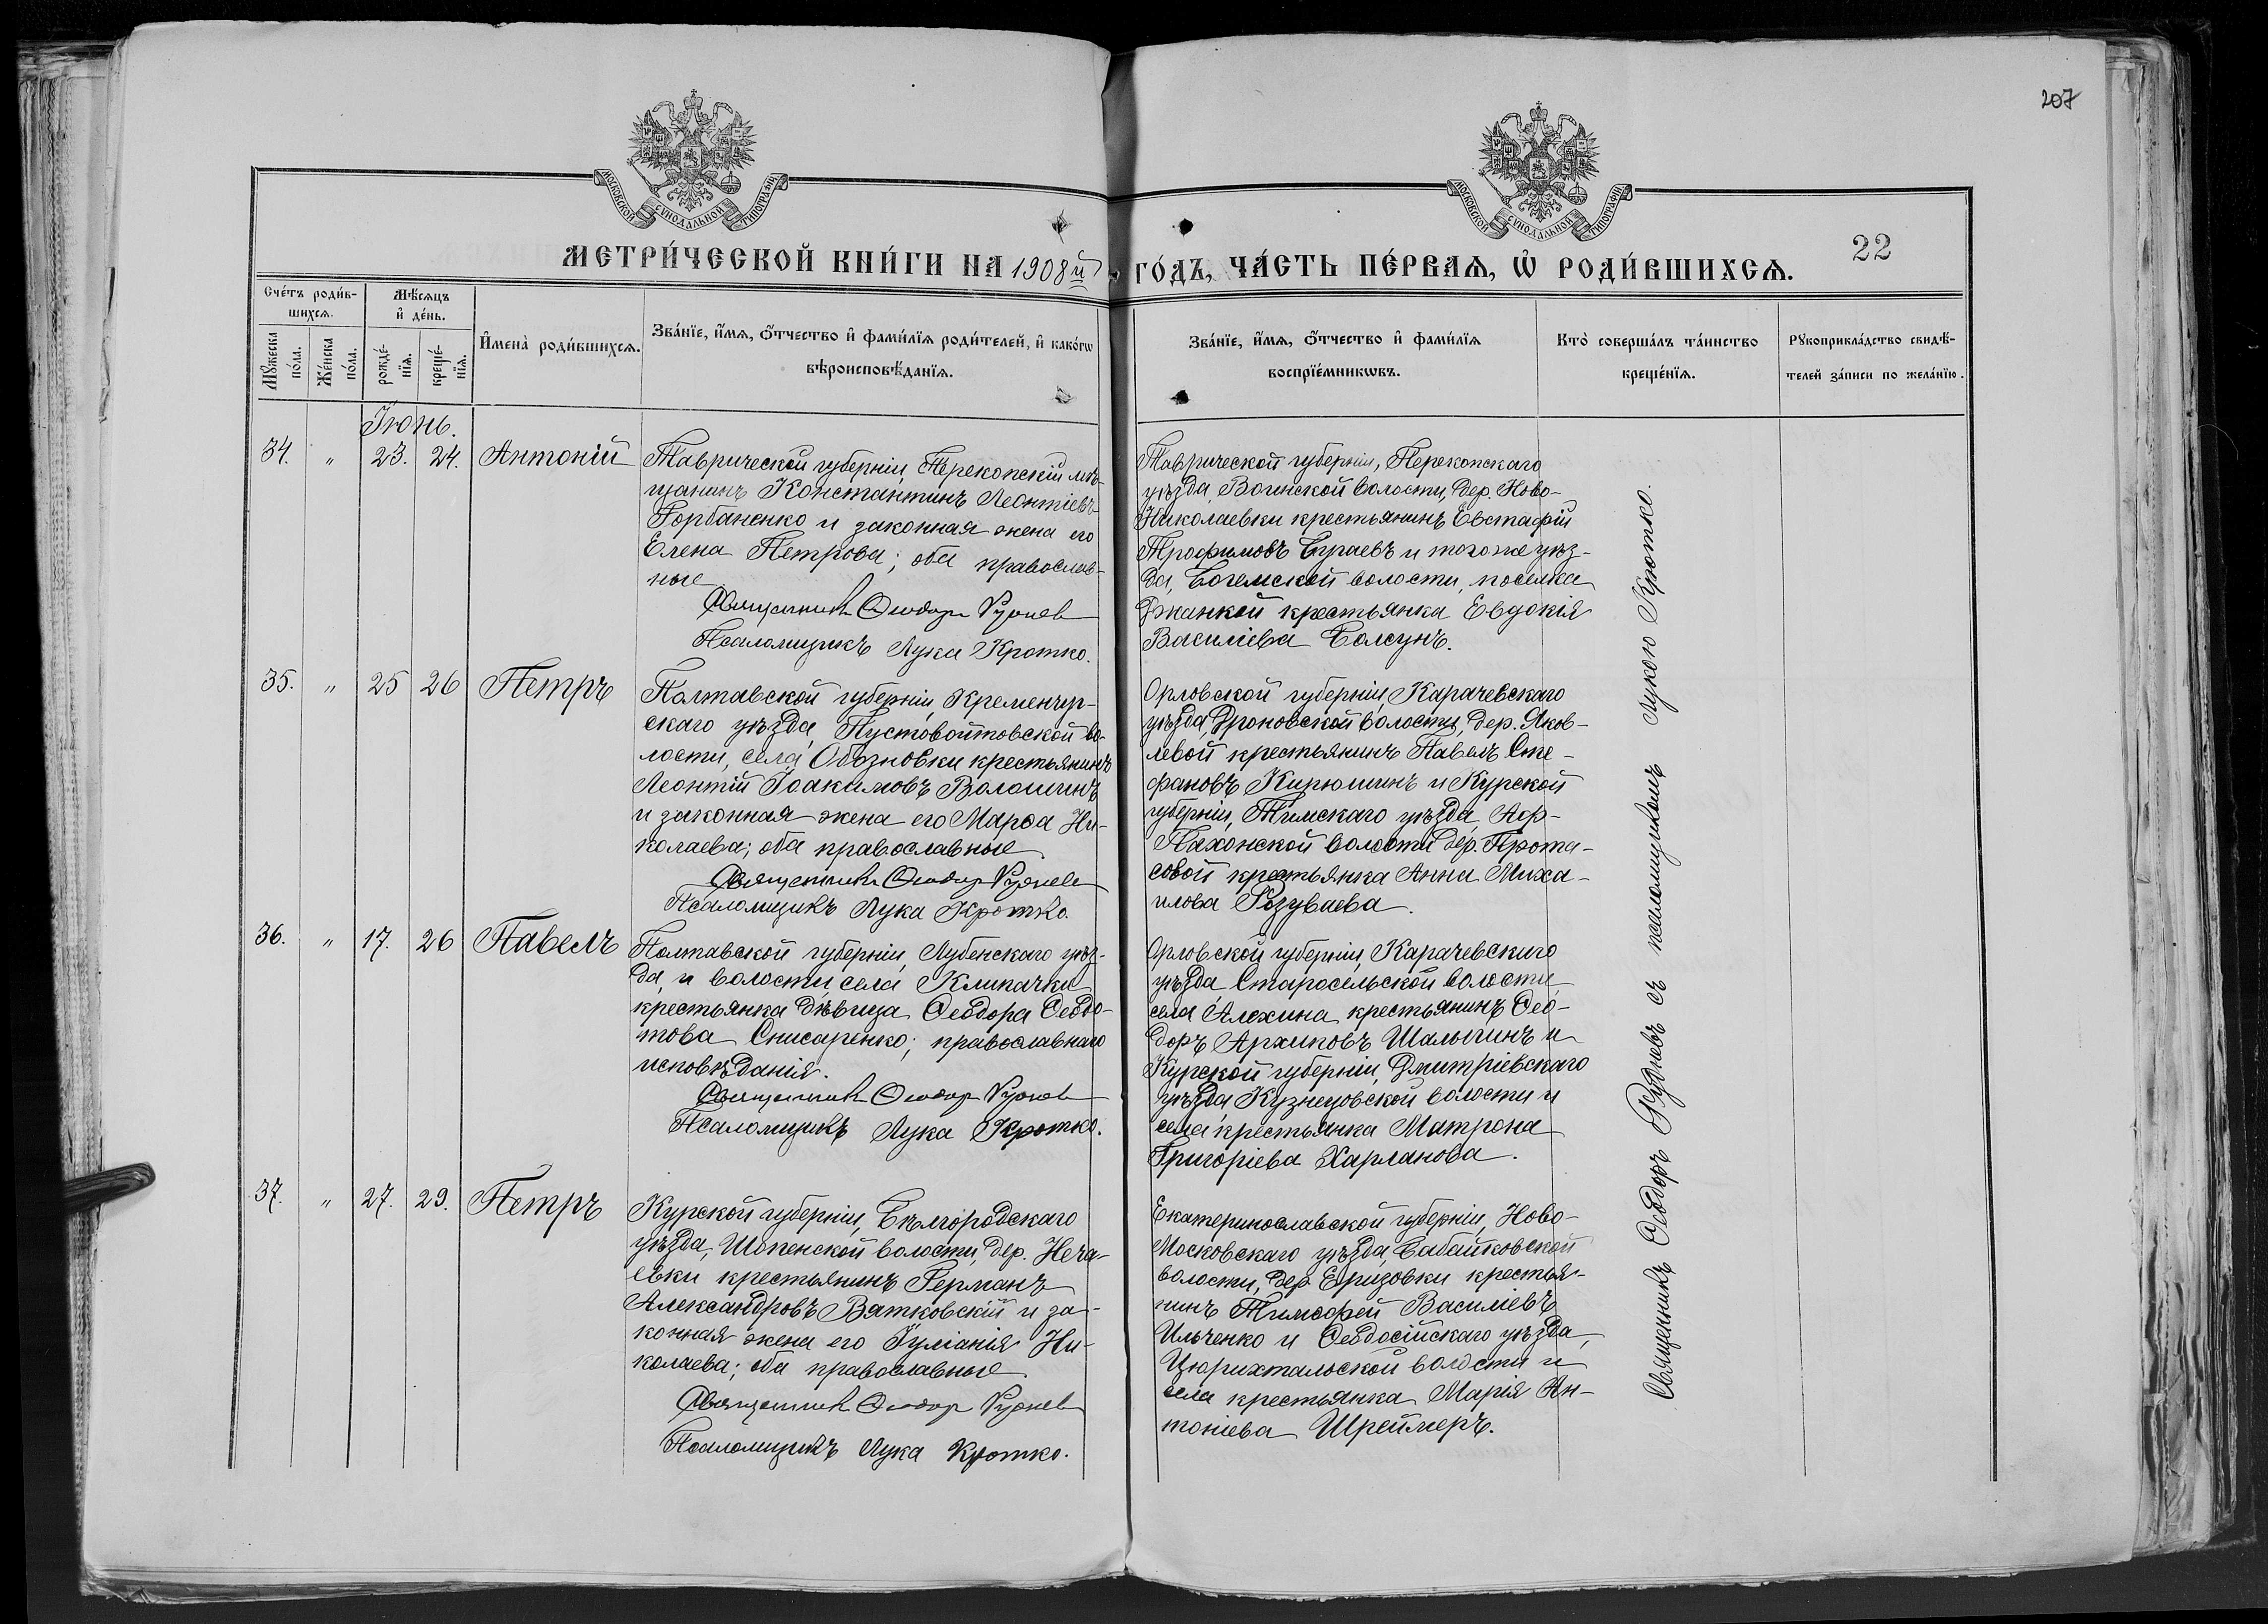 207
МОСКОВСКОЙ СУНОДАЛЬНОЙ ТИПОГРАФІИ
МОСКОВСКОЙ СУНОДАЛЬНОЙ ТИПОГРАФІИ
МЕТРИ́ЧЕСКОЙ КНИ́ГИ НА 1908й
ГО́ДЪ, ЧА́СТЬ ПЕ́РВАѦ, Ѡ҆ РОДИ́ВШИХСѦ.
22
Сче́тъ роди́в-
шихсѧ.
Мѣ́сѧцъ
и҆ де́нь.
Мꙋ́жеска
по́ла.
Же́нска
по́ла.
рожде́-
нїѧ.
креще́-
нїѧ.
И҆мена̀ роди́вшихсѧ.
Зва́нїе, и҆́мѧ, ѻ҆́тчество и҆ фами́лїѧ роди́телей, и҆ како́гѡ
вѣроисповѣ́данїѧ.
Зва́нїе, и҆́мѧ, ѻ҆́тчество и҆ фами́лїѧ
воспрїе́мникѡвъ.
Кто̀ соверша́лъ та́инство
креще́нїѧ.
Рꙋкоприкла́дство свидѣ́-
телей за́писи по жела́нїю.
Іюнь.
34. " 23. 24. Антоній
Таврической губерніи, Перекопскій мѣ-
щанинъ Константинъ Леонтіевъ
Горбаненко и законная жена его
Елена Петрова; оба православ-
ные
Священникъ Ѳеодоръ Руднев
Псаломщикъ Лука Кротко.
Таврической губерніи, Перекопскаго
уѣзда, Воинской волости, дер. Ново-
Николаевки крестьянинъ Евстафій
Трофимовъ Бураевъ и того же уѣз-
да, Богемской волости, поселка
Джанкой крестьянка Евдокія
Василіева Болсунъ.
35. " 25 26 Петръ
Полтавской губерніи, Кременчуг-
скаго уѣзда, Пустовойтовской во-
лости, села Обозновки крестьянинъ
Леонтій Іоакимовъ Волошинъ
и законная жена его Марѳа Ни-
колаева; оба православные
Священникъ Ѳеодоръ Руднев
Псаломщикъ Лука Кротко.
Орловской губерніи, Карачевскаго
уѣзда, Дроновской волости, дер. Яков-
левой крестьянинъ Павелъ Сте-
фановъ Кирюшинъ и Курской
губерніи, Тимскаго уѣзда,
Пахонской волости дер. Прота-
совой крестьянка Анна Миха-
илова Розуваева.
36. " 17. 26 Павелъ
Полтавской губерніи, Лубенскаго уѣз-
да, и волости, села Клипачки
крестьянка дѣвица Ѳеодора Ѳеодо-
това Снисаренко; православнаго
исповѣданія.
Священникъ Ѳеодоръ Руднев
Псаломщикъ Лука Кротко.
Орловской губерніи, Карачевскаго
уѣзда Старосельской волости,
села Алехина крестьянинъ Ѳео-
доръ Архиповъ Шалыгинъ и
Курской губерніи, Дмитріевскаго
уѣзда Кузнецовской волости и
села крестьянка Матрона
Григоріева Харланова.
37. " 27. 29. Петръ
Курской губерніи, Бѣлгородскаго
уѣзда, Шопенской волости, дер. Неча-
евки крестьянинъ Германъ
Александровъ Вятковскій и за-
конная жена его Іуліанія Ни-
колаева; оба православные.
Священникъ Ѳеодоръ Руднев
Псаломщикъ Лука Кротко.
Екатеринославской губерніи, Ново-
Московскаго уѣзда, Бабайковской
волости, дер. Еризовки крестья-
нинъ Тимофей Василіевъ
Ильченко и Ѳеодосійскаго уѣзда,
Цюрихтальской волости и
села крестьянка Марія Ан-
тоніева Шреймеръ.
Священникъ Ѳеодоръ Рудневъ съ псаломщикомъ Лукою Кротко.